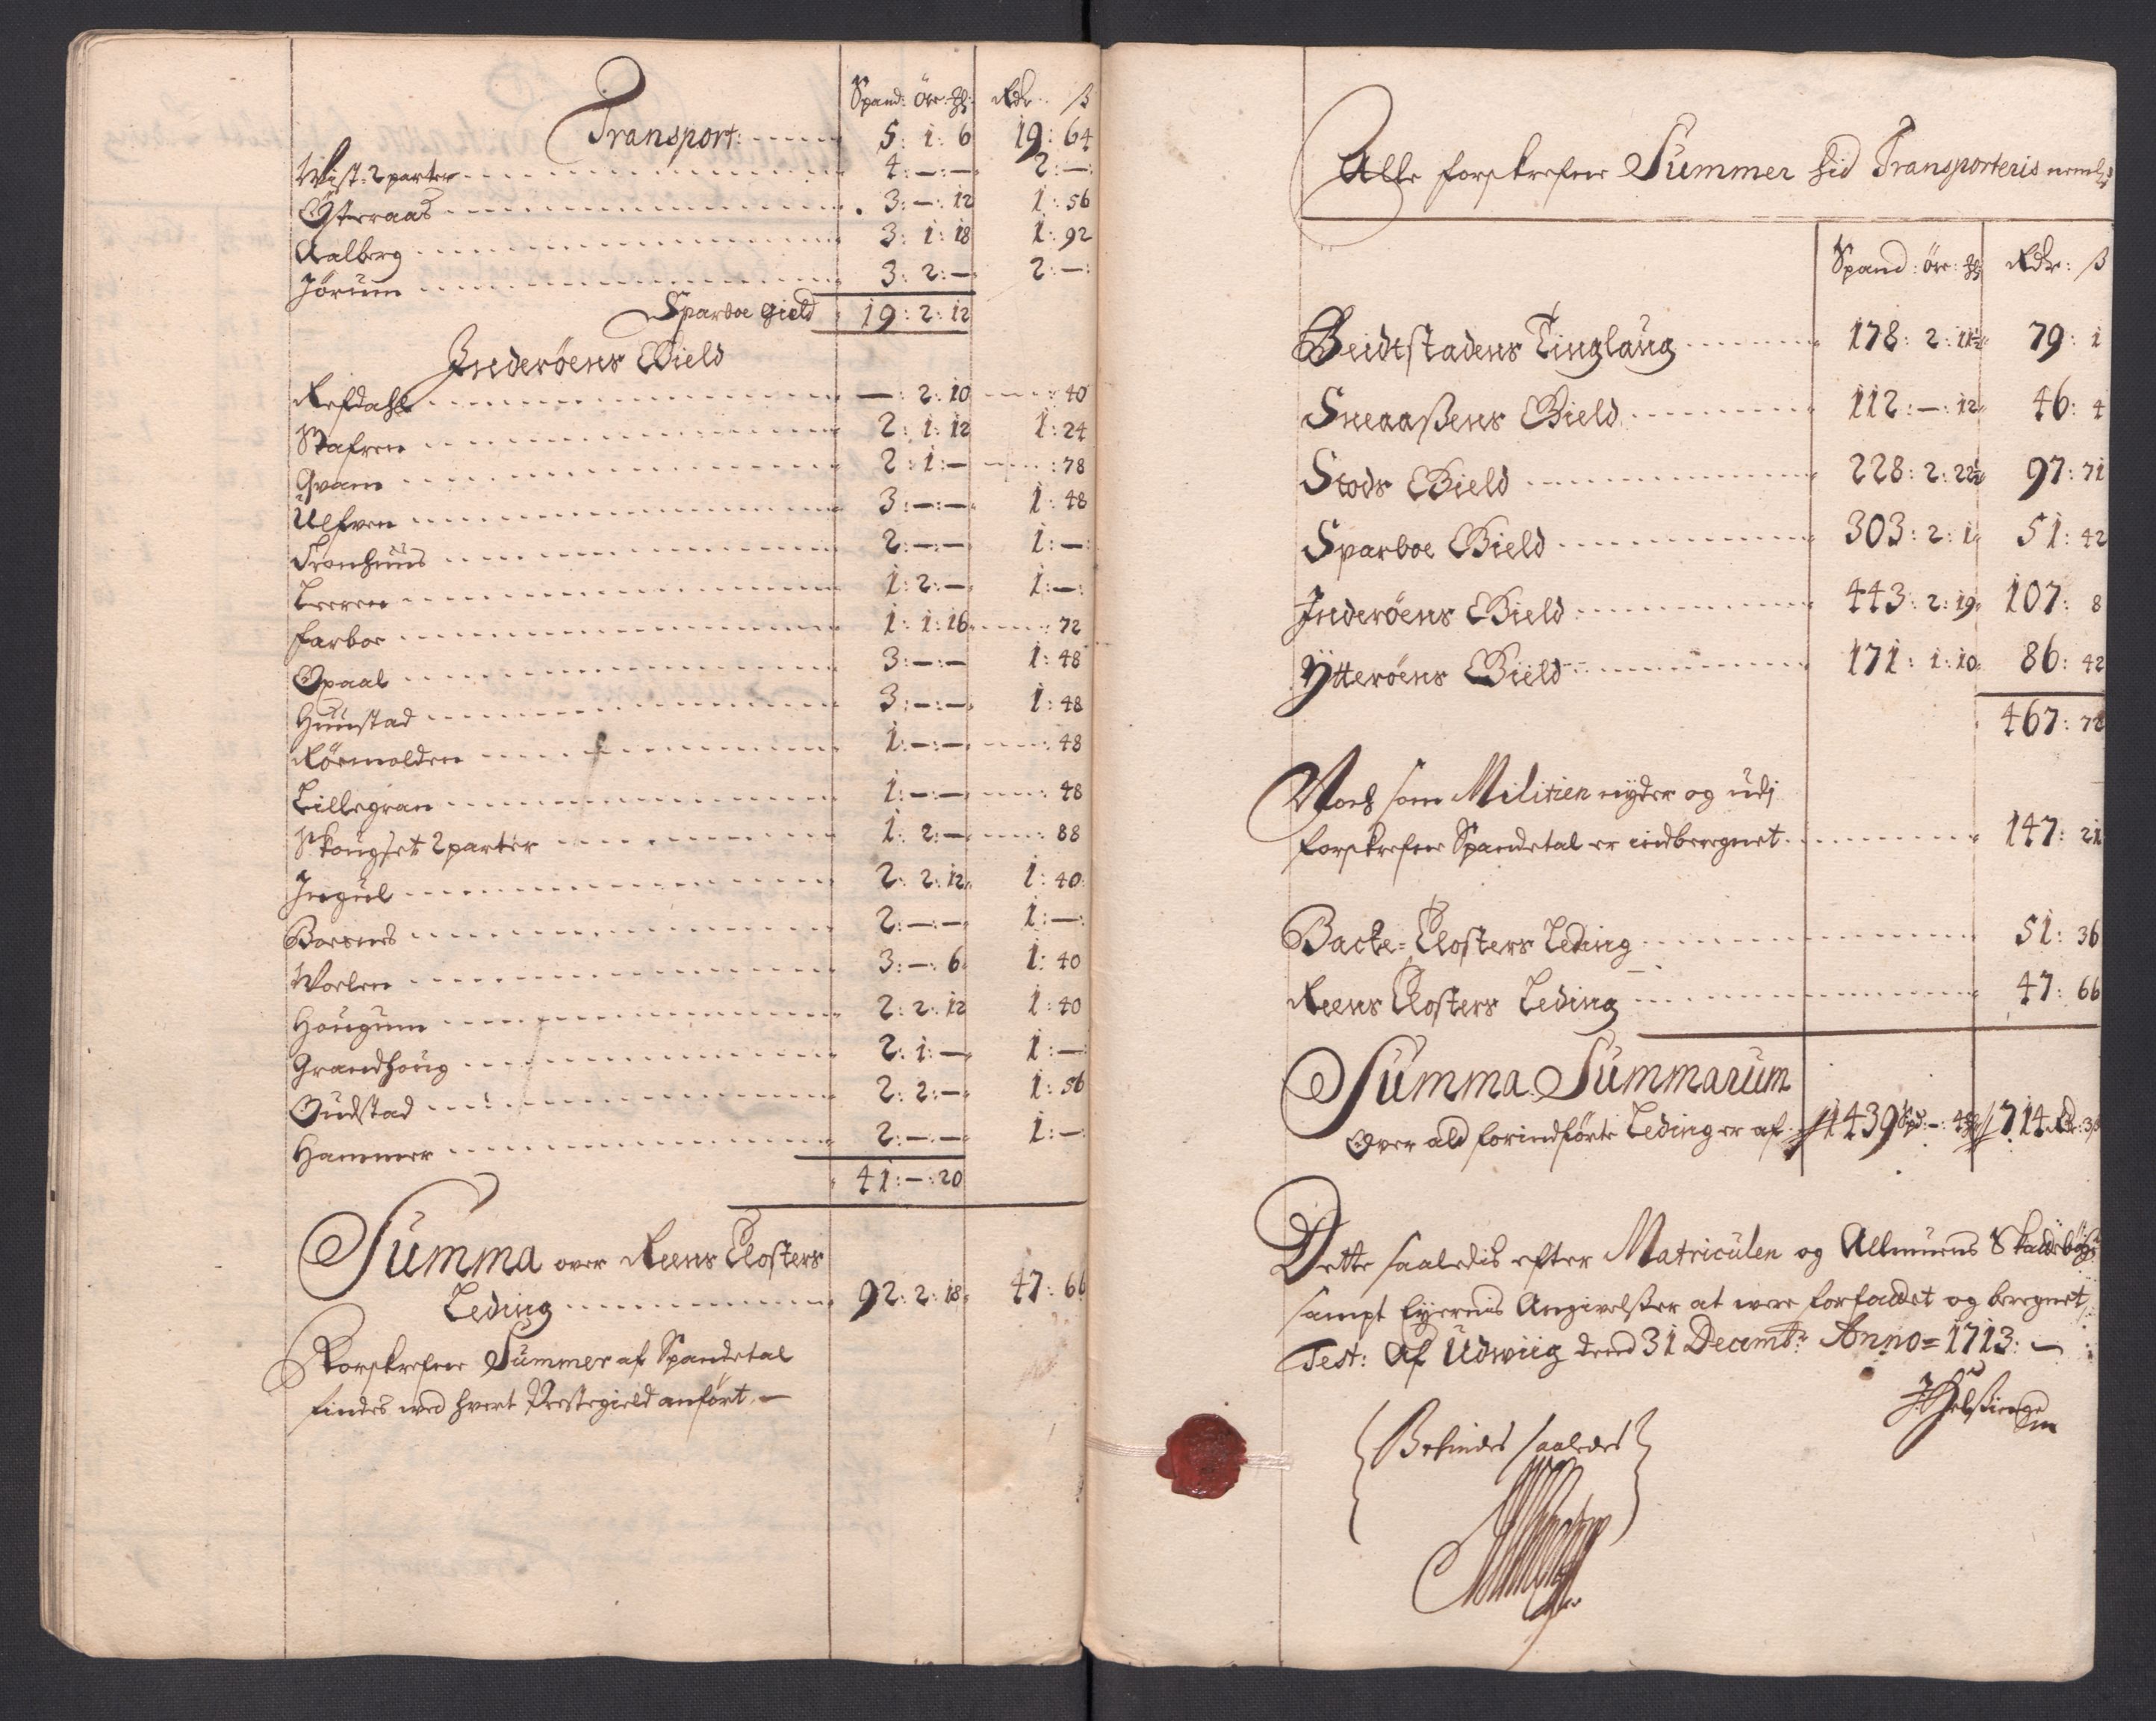 Spand: öre: Rdr: ß
Transport: 5: 1: 6 19: 64
Wist: 2 parter 4: —: — 2: —:
Österaas 3: —: 12 1: 56
Aalberg 3: 1: 18 1: 92
Jörum 3: 2: — 2: —:
Sparboe gield 19: 2: 12
Inderöens Gield
Refdahl —: 2: 10 40
Stafren 2: 1: 12 1: 24
Qvam 2: 1: — : 78
Ulfven 3: —: — 1: 48
Tronhuus 2: —: — 1: —:
Leeren 1: 2: — 1: —:
Farboe 1: 1: 16 : 72
Opaal 3: —: — 1: 48
Huustad 3: —: — 1: 48
Röemolden 1: —: — : 48
Lillegran 1: —: — : 48
Skougset 2 parter 1: 2: — : 88
Ingul 2: 2: 12 1: 40
Boesnes 2: —: — 1: —:
Woelen 3: —: 6 1: 40
Hougum 2: 2: 12 1: 40
Grandhoug 2: 1: — 1: —
Gudstad 2: 2: — 1: 56
Hammer 2: —: — 1: —
41: —: 20
Summa over Reens Closters
Leding 92: 2: 18 47: 66
Forskrefne Summer af Spandetal
findes wed hvert Prestegield anfört. —
Alle forskrefne Summer hid Transporteris neml:
Spand: öre: Rdr: ß
Beidtstadens Tinglaug 178: 2: 11½ 79: 1
Sneaaßens Gield 112: —: 12 46: 4
Stods Gield 228: 2: 22½ 97: 71
Sparboe Gield 303: 2: 1 51: 42
Inderöens Gield 443: 2: 19 107: 8
Ytteröens Gield 171: 1: 10 86: 42
467: 72
Noch som Militien nyder og udj
forskrefne Spandetal er indberegnet 147: 21
Backe-Closters Leding 51: 36
Reens Closters Leding 47: 66
Summa Summarum
Over ald forindförte Leding er af 1439 Spd: —: 4 714 Rdr: 3
Dette saaledis efter Matriculen og Allmuens
sampt Eyernis Angivelßer at were forfaddet og beregnet,
Test: Af Udwiig dend 31 Decembr: Anno = 1713: —
Befindes saaledes